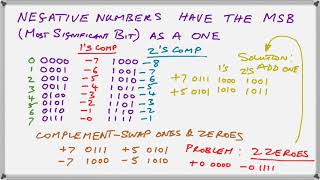 NEGATIVE NUMBERS HAVE THE MSB
(MOST SIGNIFICANT BIT) AS A ONE
1's COMP 2's COMP
0 0000 -7 1000 -8
1 0001 -6 1001 -7
2 0010 -5 1010 -6
3 0011 -4 1011 -5
4 0100 -3 1100 -4
5 0101 -2 1101 -3
6 0110 -1 1110 -2
7 0111 -0 1111 -1
SOLUTION:
1's 2's ADD ONE
+7 0111 1000 1001
+5 0101 1010 1011
COMPLEMENT-SWAP ONES & ZEROES
+7 0111 +5 0101
-7 1000 -5 1010
PROBLEM: 2 ZEROES
+0 0000 -0 1111